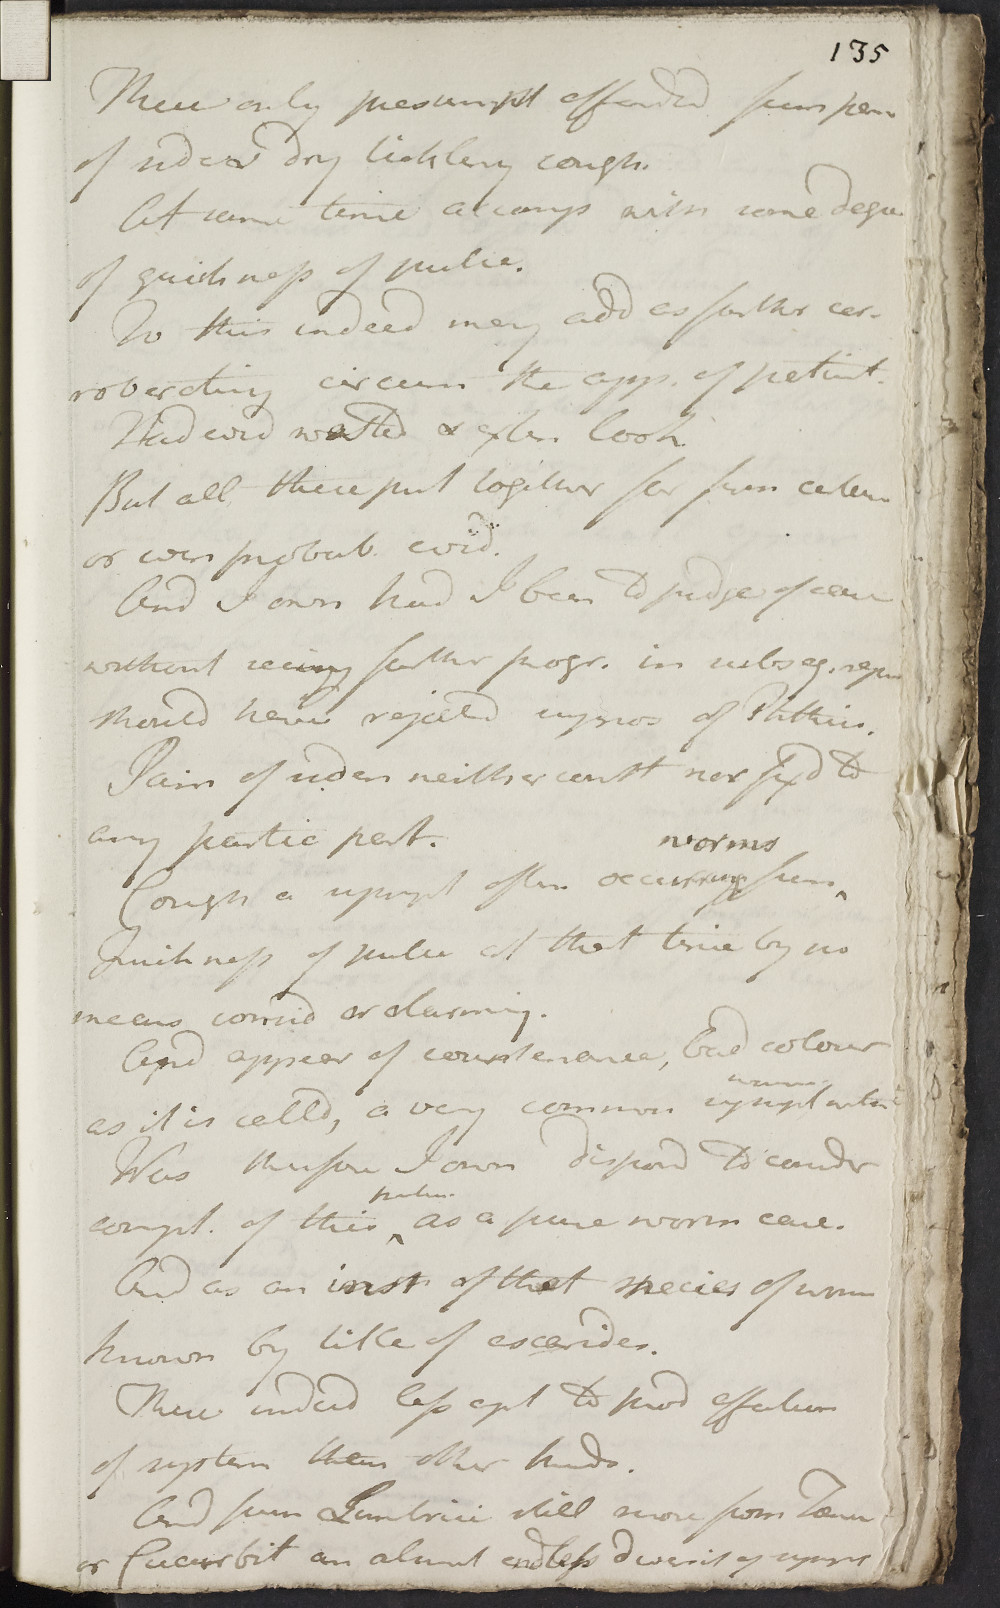 135
These only presumpt afforded from pain
of sides & dry tickling cough.
At same time accomp with some degre
of quickness of pulse.
To this indeed may add as farther cor-
roborating circum the app. of patient.
Had even wasted & exten look
But all these put together far from certain
or even probab. evid.
And I own had I been to judge of case
without seeing farther progr. in subseq. repor
should have rejected suppos of Phthisis.
Pain of sides neither const nor fixd to
any partic part.
Cough a sympt often occurring from worms
Quickness of pulse at that time by no
means consid or alarming.
And appear of countenance, bad colour
as it is calld, a very common sympt
Was therefore I own disposd to consider
compt. of this patien as a pure worm case.
And as an inst of that species of worm
known by title of ascarides.
These indeed less apt to prod affection
of system than other kinds.
And from Lumbrici still more from Taenia
or Cucurbit an almost endless diversit of sympt